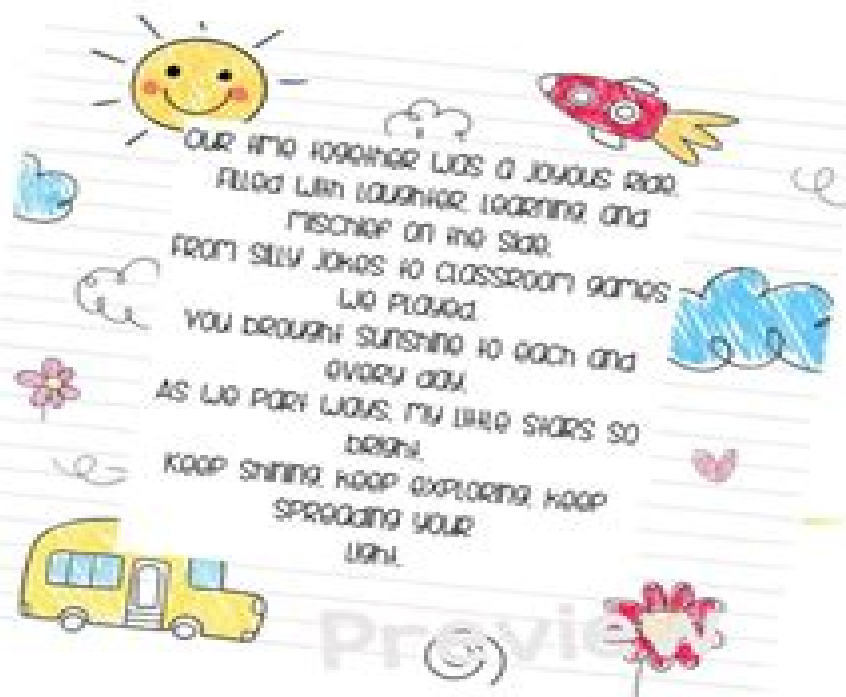 Our time together was a joyous ride,
Filled with laughter, learning, and
mischief on the side.
From silly jokes to classroom games
we played,
You brought sunshine to each and
every day.
As we part ways, my little stars so
bright,
Keep shining, keep exploring, keep
spreading your
light.
Previe